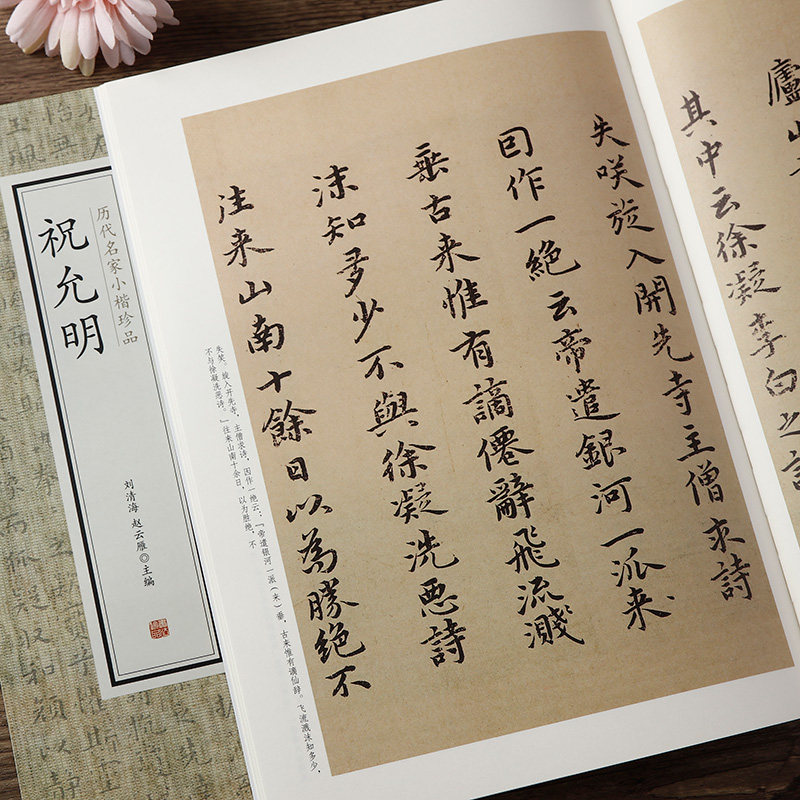 历代名家小楷珍品
祝允明
刘清海 赵云雁◎主编
其中云徐凝李白之詩
失咲旋入開先寺主僧求詩
囙作一絶云帝遣銀河一派来
垂古来惟有謫僊辭飛流濺
沫知多少不與徐凝洗惡詩
往来山南十餘日以為勝絶不
失笑。旋入开先寺,主僧求诗,因作一绝云:「帝遣银河一派(来)垂,古来惟有谪仙辞。飞流溅沫知多少,
不与徐凝洗恶诗。」往来山南十余日,以为胜绝,不